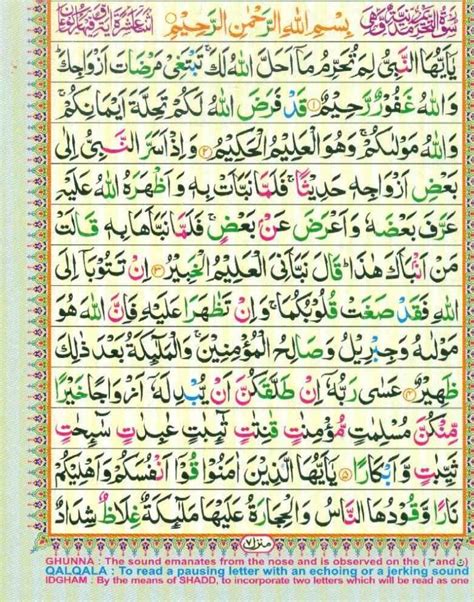 بِسْمِ اللهِ الرَّحْمٰنِ الرَّحِيْمِ
يٰٓاَيُّهَا النَّبِيُّ لِمَ تُحَرِّمُ مَآ اَحَلَّ اللهُ لَكَ ۚ تَبْتَغِيْ مَرْضَاتَ اَزْوَاجِكَ ؕ
وَاللهُ غَفُوْرٌ رَّحِيْمٌ ۝۱ قَدْ فَرَضَ اللهُ لَكُمْ تَحِلَّةَ اَيْمَانِكُمْ ۚ
وَاللهُ مَوْلٰىكُمْ ۚ وَهُوَ الْعَلِيْمُ الْحَكِيْمُ ۝۲ وَاِذْ اَسَرَّ النَّبِيُّ اِلٰى
بَعْضِ اَزْوَاجِهٖ حَدِيْثًا ۚ فَلَمَّا نَبَّاَتْ بِهٖ وَاَظْهَرَهُ اللهُ عَلَيْهِ
عَرَّفَ بَعْضَهٗ وَاَعْرَضَ عَنْۢ بَعْضٍ ۚ فَلَمَّا نَبَّاَهَا بِهٖ قَالَتْ
مَنْ اَنْۢبَاَكَ هٰذَا ؕ قَالَ نَبَّاَنِيَ الْعَلِيْمُ الْخَبِيْرُ ۝۳ اِنْ تَتُوْبَآ اِلَى
اللهِ فَقَدْ صَغَتْ قُلُوْبُكُمَا ۚ وَاِنْ تَظٰهَرَا عَلَيْهِ فَاِنَّ اللهَ هُوَ
مَوْلٰىهُ وَجِبْرِيْلُ وَصَالِحُ الْمُؤْمِنِيْنَ ۚ وَالْمَلٰٓئِكَةُ بَعْدَ ذٰلِكَ
ظَهِيْرٌ ۝۴ عَسٰى رَبُّهٗٓ اِنْ طَلَّقَكُنَّ اَنْ يُّبْدِلَهٗٓ اَزْوَاجًا خَيْرًا
مِّنْكُنَّ مُسْلِمٰتٍ مُّؤْمِنٰتٍ قٰنِتٰتٍ تٰٓئِبٰتٍ عٰبِدٰتٍ سٰٓئِحٰتٍ
ثَيِّبٰتٍ وَّاَبْكَارًا ۝۵ يٰٓاَيُّهَا الَّذِيْنَ اٰمَنُوْا قُوْٓا اَنْفُسَكُمْ وَاَهْلِيْكُمْ
نَارًا وَّقُوْدُهَا النَّاسُ وَالْحِجَارَةُ عَلَيْهَا مَلٰٓئِكَةٌ غِلَاظٌ شِدَادٌ
منزل۷
GHUNNA : The sound emanates from the nose and is observed on the ( م and ن )
QALQALA : To read a pausing letter with an echoing or a jerking sound
IDGHAM : By the means of SHADD, to incorporate two letters which will be read as one